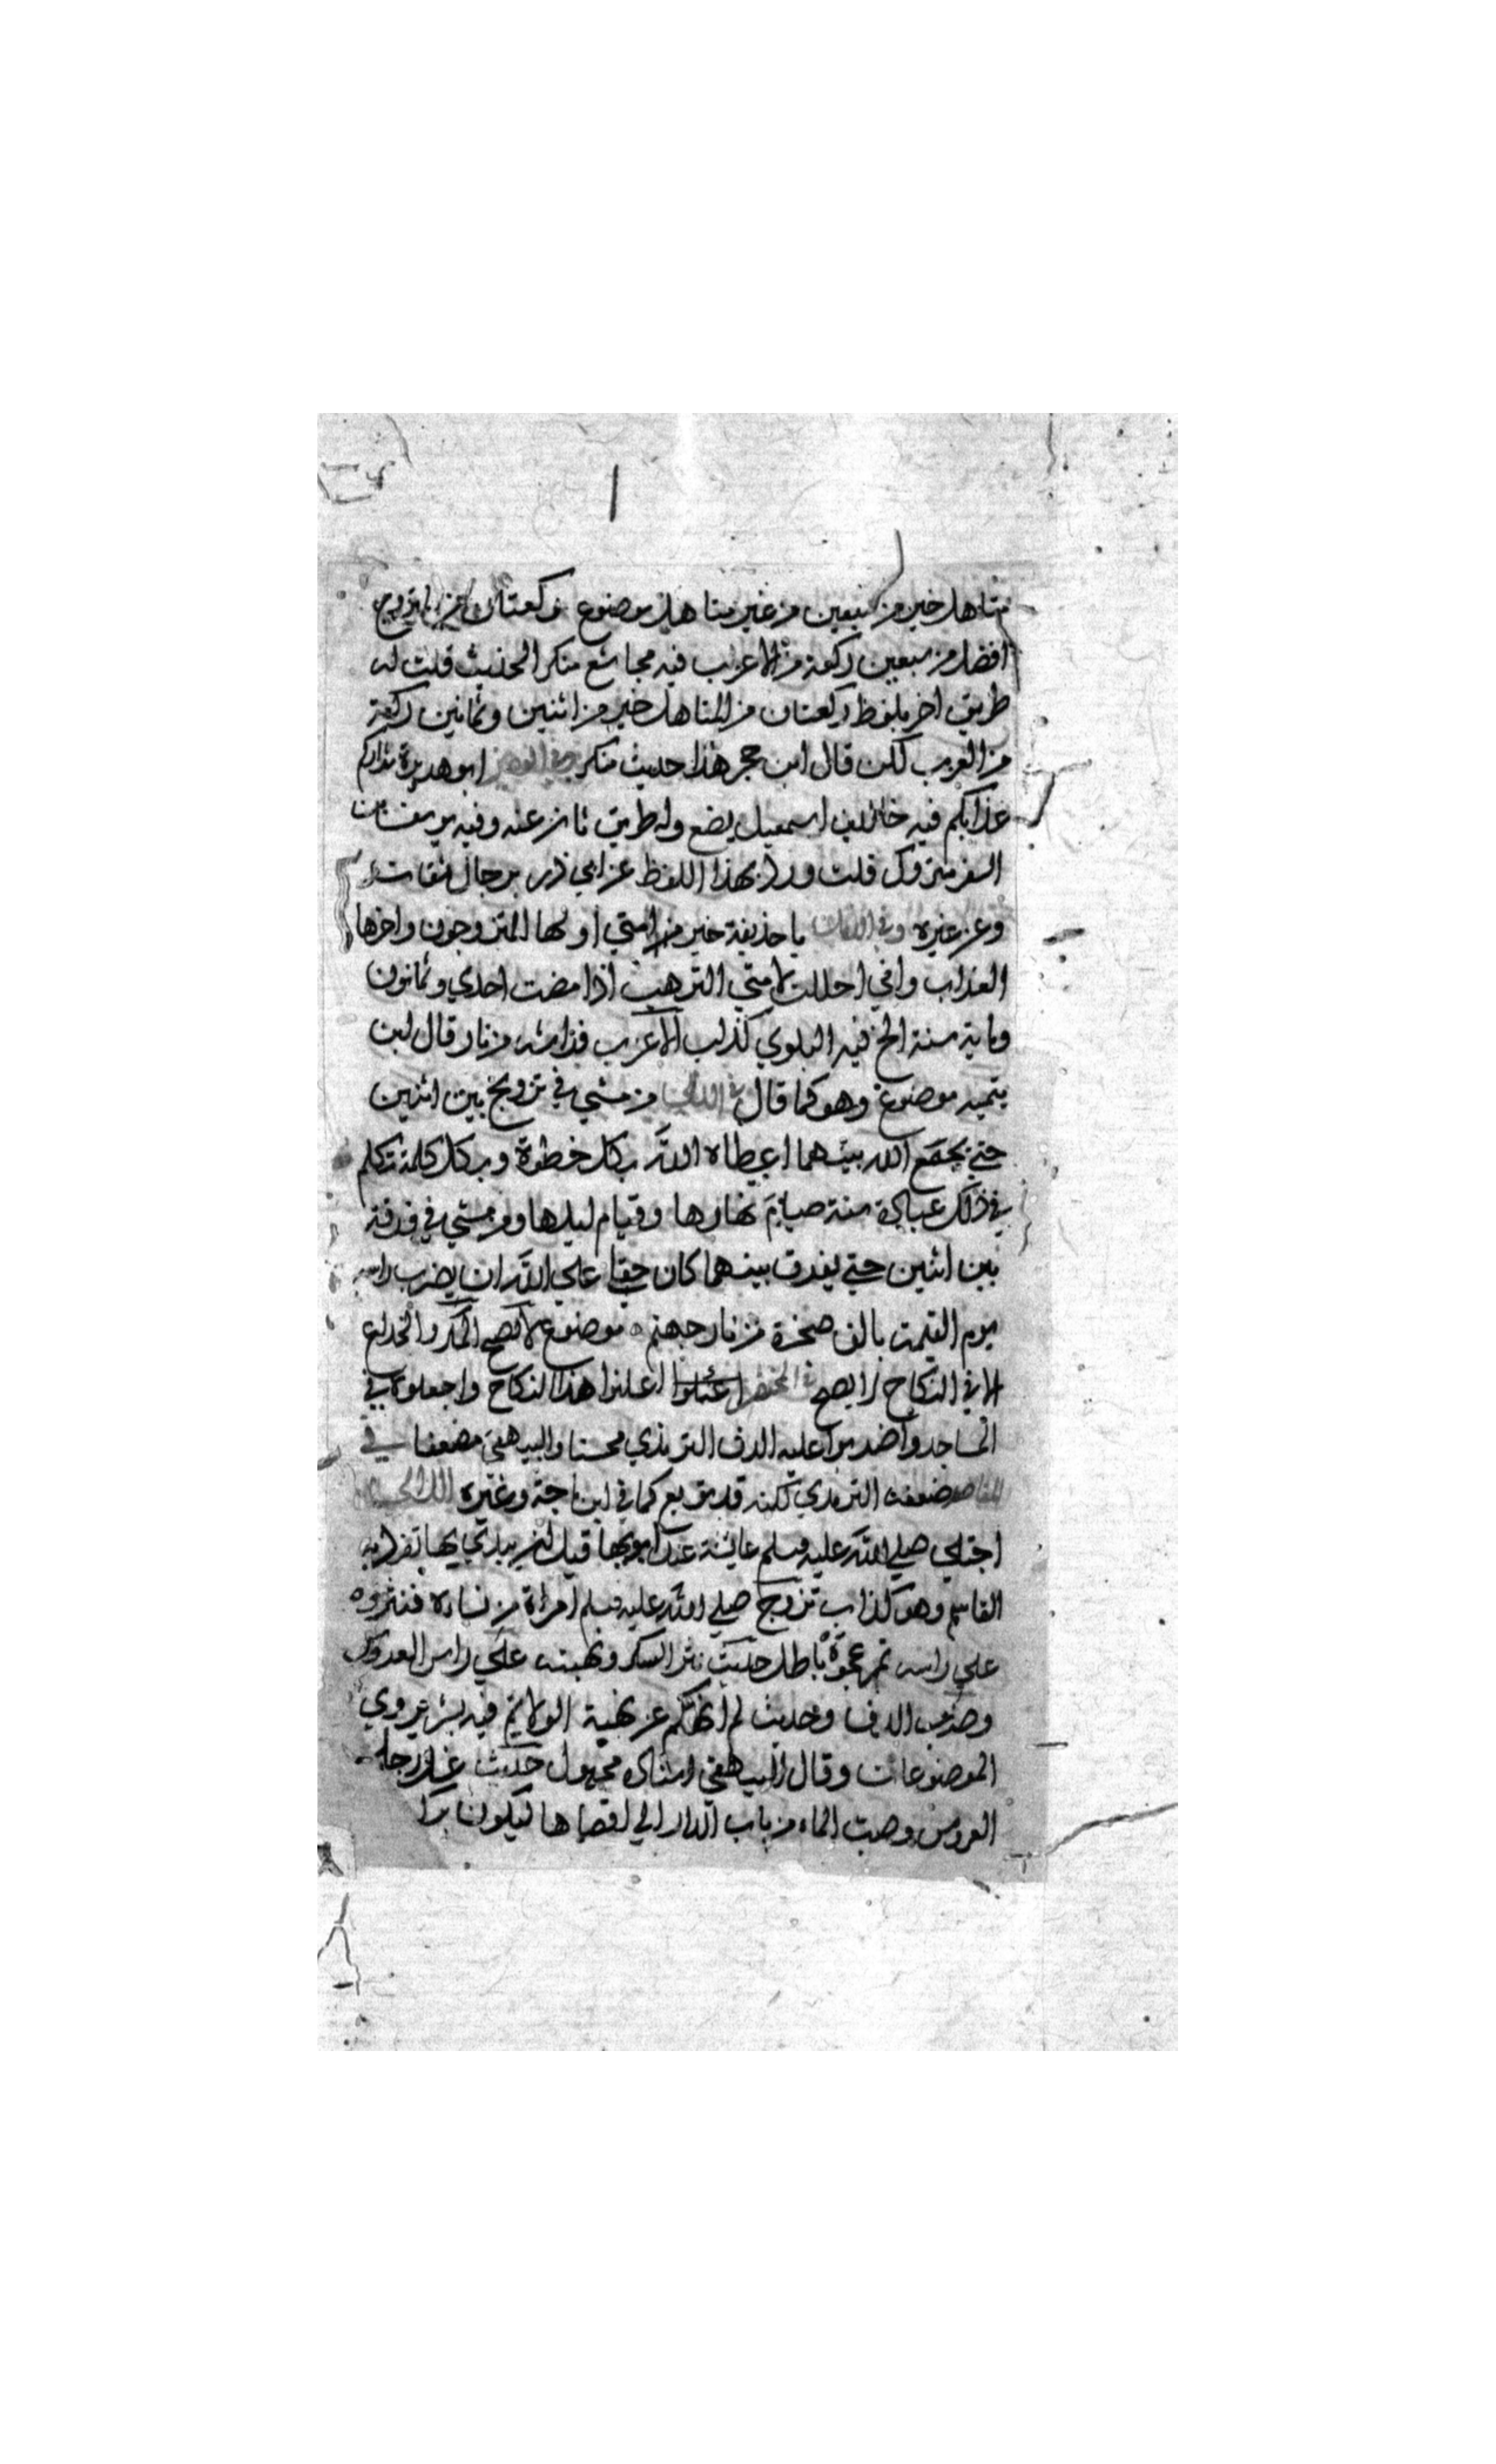 متاهل خير من سبعين من غير متاهل موضوع ركعتان من المتزوج
افضل من سبعين ركعة من الاعزب فيه مجاشع منكر الحديث قلت له
طريق اخر بلفظ ركعتان من المتاهل خير من اثنين وثمانين ركعة
من العزب لكن قال ابن حجر هذا حديث منكر وفي الوجيز ابو هريرة شراركم
عزابكم فيه خالد بن اسمعيل يضع وله طريق ثان عنه وفيه يوسف بن
السفر متروك قلت ورد بهذا اللفظ عن ابي ذر برجال ثقات
وعن غيره وفي اللآلئ يا حذيفة خير امتي اولها المتزوجون واخرها
العزاب واني احللت لامتي الترهب اذا مضت احدي وثمانون
وماية سنة الخ فيه البلوي كذاب الاعزب فراشه من نار قال ابن
تيمية موضوع وهو كما قال في الذيل من مشي في تزويج بين اثنين
حتي يجمع الله بينهما اعطاه الله بكل خطوة وبكل كلمة تكلم
في ذلك عبادة سنة صيام نهارها وقيام ليلها ومن مشي في فرقة
بين اثنين حتي يفرق بينهما كان حقا علي الله ان يضرب راسه
يوم القيمة بالف صخرة من نار جهنم موضوع لا يصح المكر والخداع
الا في النكاح لا يصح في المختصر اعلنوا هذا النكاح واجعلوه في
المساجد واضربوا عليه الدف الترمذي محسنا والبيهقي مضعفا في
المقاصد ضعفه الترمذي لكنه قد توبع كما في ابن ماجة وغيره
اجتلي صلي الله عليه وسلم عائشة عند ابويها قبل ان يبتني بها تفرد به
القاسم وهو كذاب تزوج صلي الله عليه وسلم امراة من نساءه فنثروه
علي راسه تمر عجوة باطل حديث نثر السكر ونهبته علي راس العروس
وضرب الدف وحديث لم انهكم عن نهبة الولائم فيه بشر يروي
الموضوعات وقال البيهقي اسناده مجهول حديث غسل رجل
العروس وصب الماء من باب الدار الي اقصاها ليكون